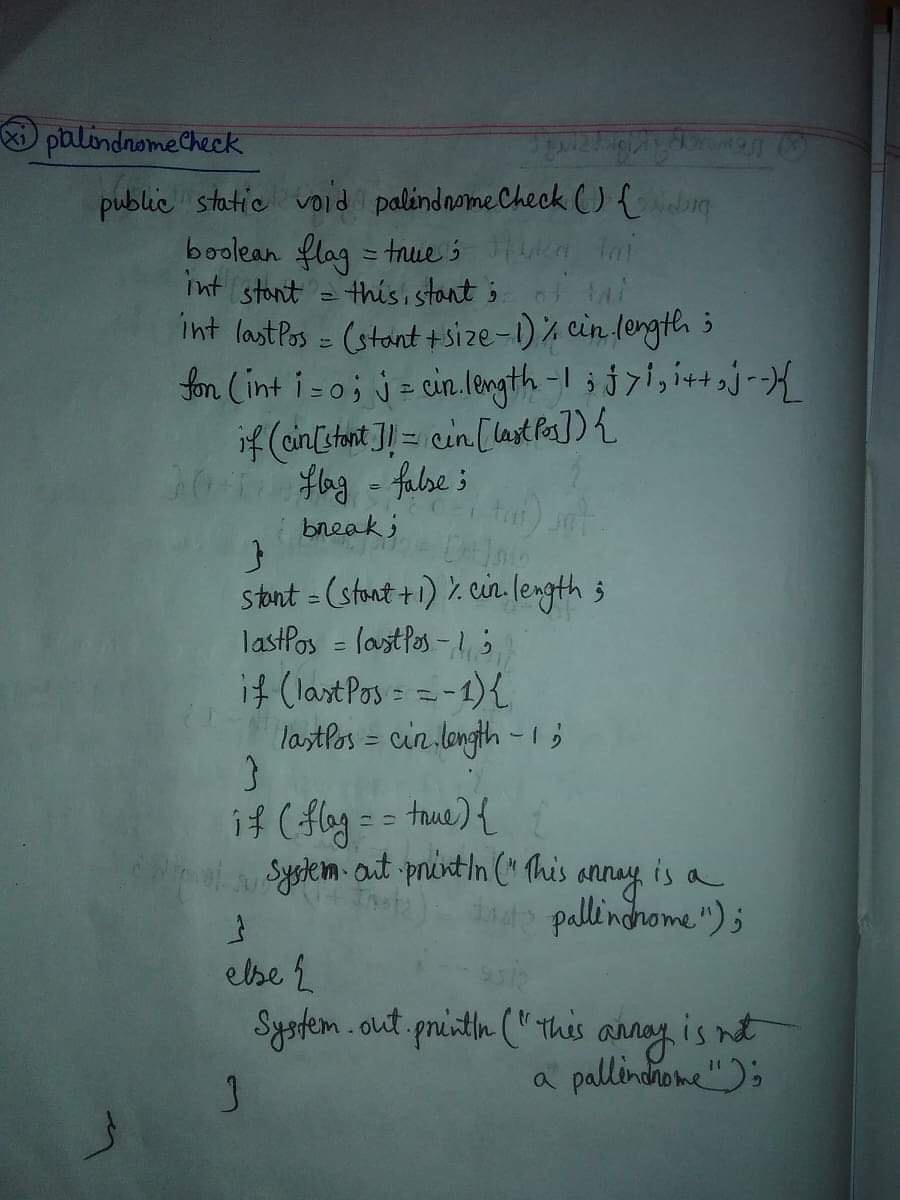 xi) palindromeCheck
public static void palindromeCheck () {
boolean flag = true ;
int start = this.start ;
int lastPos = (start + size - 1) % cir.length ;
for (int i = 0 ; j = cir.length - 1 ; j > i, i++, j--) {
if (cir[start] != cir[lastPos]) {
flag = false ;
break ;
}
start = (start + 1) % cir.length ;
lastPos = lastPos - 1 ;
if (lastPos = = -1) {
lastPos = cir.length - 1 ;
}
if (flag = = true) {
System.out.println (" This array is a
pallindrome") ;
}
else {
System.out.println (" This array is not
a pallindrome") ;
}
}